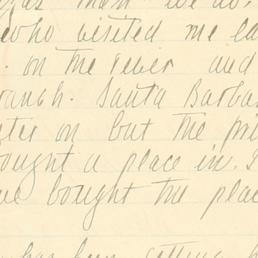 than we do.
who visited me la
on the river and
ranch. Santa Barba
ter on but the pri
ought a place in. I
ve bought the plac
has been getting